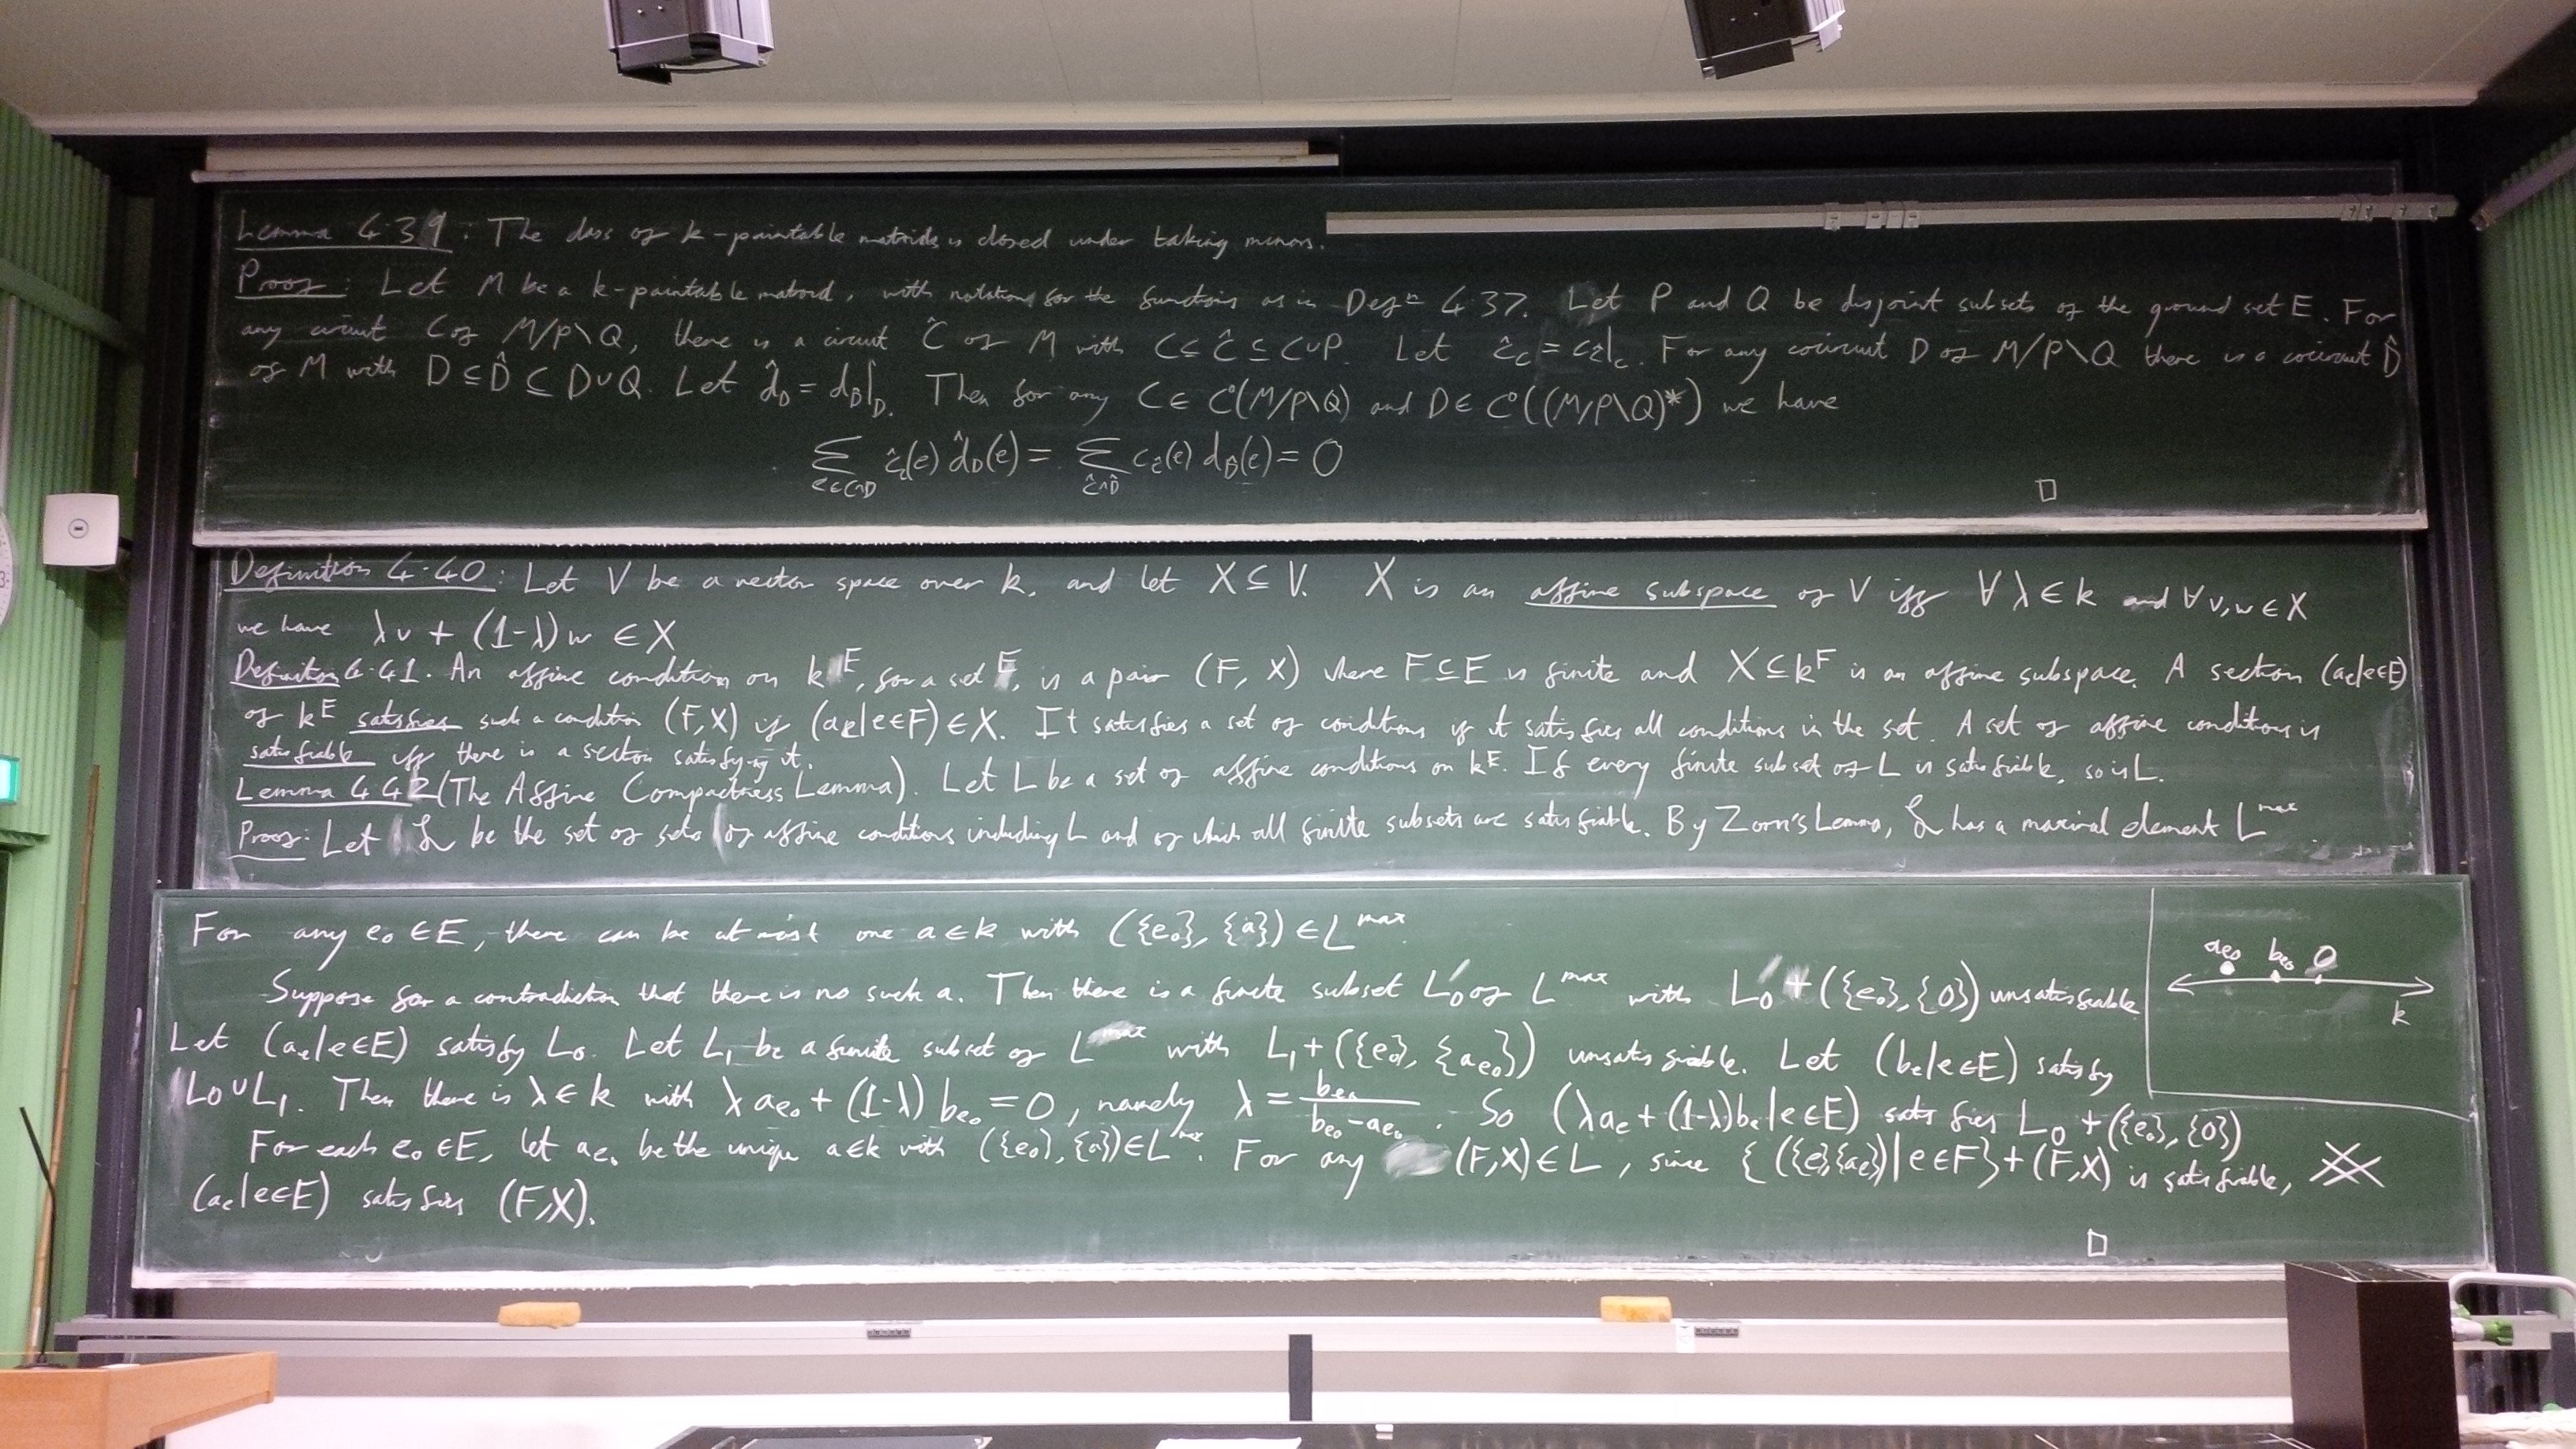 Lemma 4.39: The class of k-paintable matroids is closed under taking minors.
Proof: Let M be a k-paintable matroid, with notation for the functions as in Defⁿ 4.37. Let P and Q be disjoint subsets of the ground set E. For
any circuit C of M/P\Q, there is a circuit Ĉ of M with C ⊆ Ĉ ⊆ C∪P. Let ĉ_C = c_Ĉ|_C. For any cocircuit D of M/P\Q there is a cocircuit D̂
of M with D ⊆ D̂ ⊆ D∪Q. Let d̂_D = d_D̂|_D. Then for any C ∈ C(M/P\Q) and D ∈ C((M/P\Q)*) we have
∑_{e∈C∩D} ĉ_C(e) d̂_D(e) = ∑_{Ĉ∩D̂} c_Ĉ(e) d_D̂(e) = 0
□
Definition 4.40: Let V be a vector space over k, and let X ⊆ V. X is an affine subspace of V iff ∀ λ ∈ k and ∀ v,w ∈ X
we have λv + (1-λ)w ∈ X
Definition 4.41. An affine condition on k^E, for a set E, is a pair (F, X) where F ⊆ E is finite and X ⊆ k^F is an affine subspace. A section (a_e|e∈E)
of k^E satisfies such a condition (F,X) if (a_e|e∈F) ∈ X. It satisfies a set of conditions if it satisfies all conditions in the set. A set of affine conditions is
satisfiable iff there is a section satisfying it.
Lemma 4.42 (The Affine Compactness Lemma). Let L be a set of affine conditions on k^E. If every finite subset of L is satisfiable, so is L.
Proof: Let ℒ be the set of sets of affine conditions including L and of which all finite subsets are satisfiable. By Zorn's Lemma, ℒ has a maximal element L^max.
For any e₀ ∈ E, there can be at most one a ∈ k with ({e₀}, {a}) ∈ L^max.
Suppose for a contradiction that there is no such a. Then there is a finite subset L₀ of L^max with L₀ + ({e₀}, {0}) unsatisfiable
Let (a_e|e∈E) satisfy L₀. Let L₁ be a finite subset of L^max with L₁ + ({e₀}, {a_e₀}) unsatisfiable. Let (b_e|e∈E) satisfy
L₀∪L₁. Then there is λ ∈ k with λ a_e₀ + (1-λ) b_e₀ = 0, namely λ = b_e₀/(b_e₀ - a_e₀). So (λa_e + (1-λ)b_e|e∈E) satisfies L₀ + ({e₀}, {0})
For each e₀ ∈ E, let a_e₀ be the unique a∈k with ({e₀}, {a}) ∈ L^max. For any (F,X) ∈ L, since {({e},{a_e})|e∈F} + (F,X) is satisfiable,
(a_e|e∈E) satisfies (F,X).
□
a_e₀ b_e₀ 0
k